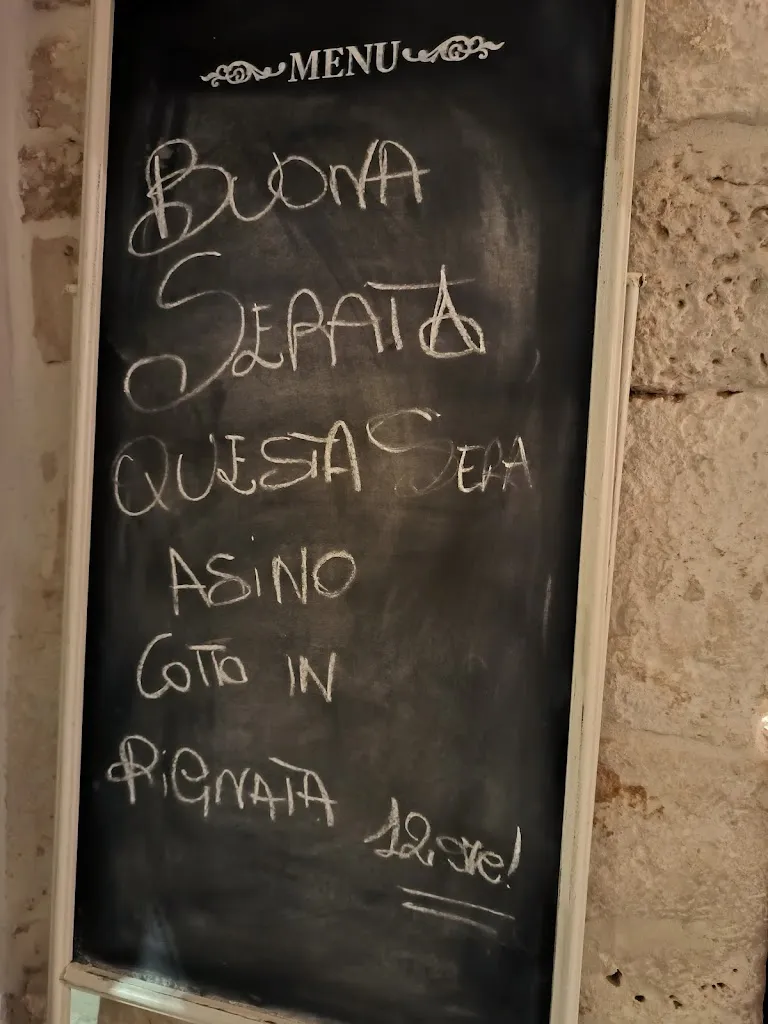 MENU
BUONA
SERATA
QUESTA SERA
ASiNO
COTTO IN
PiGNATA